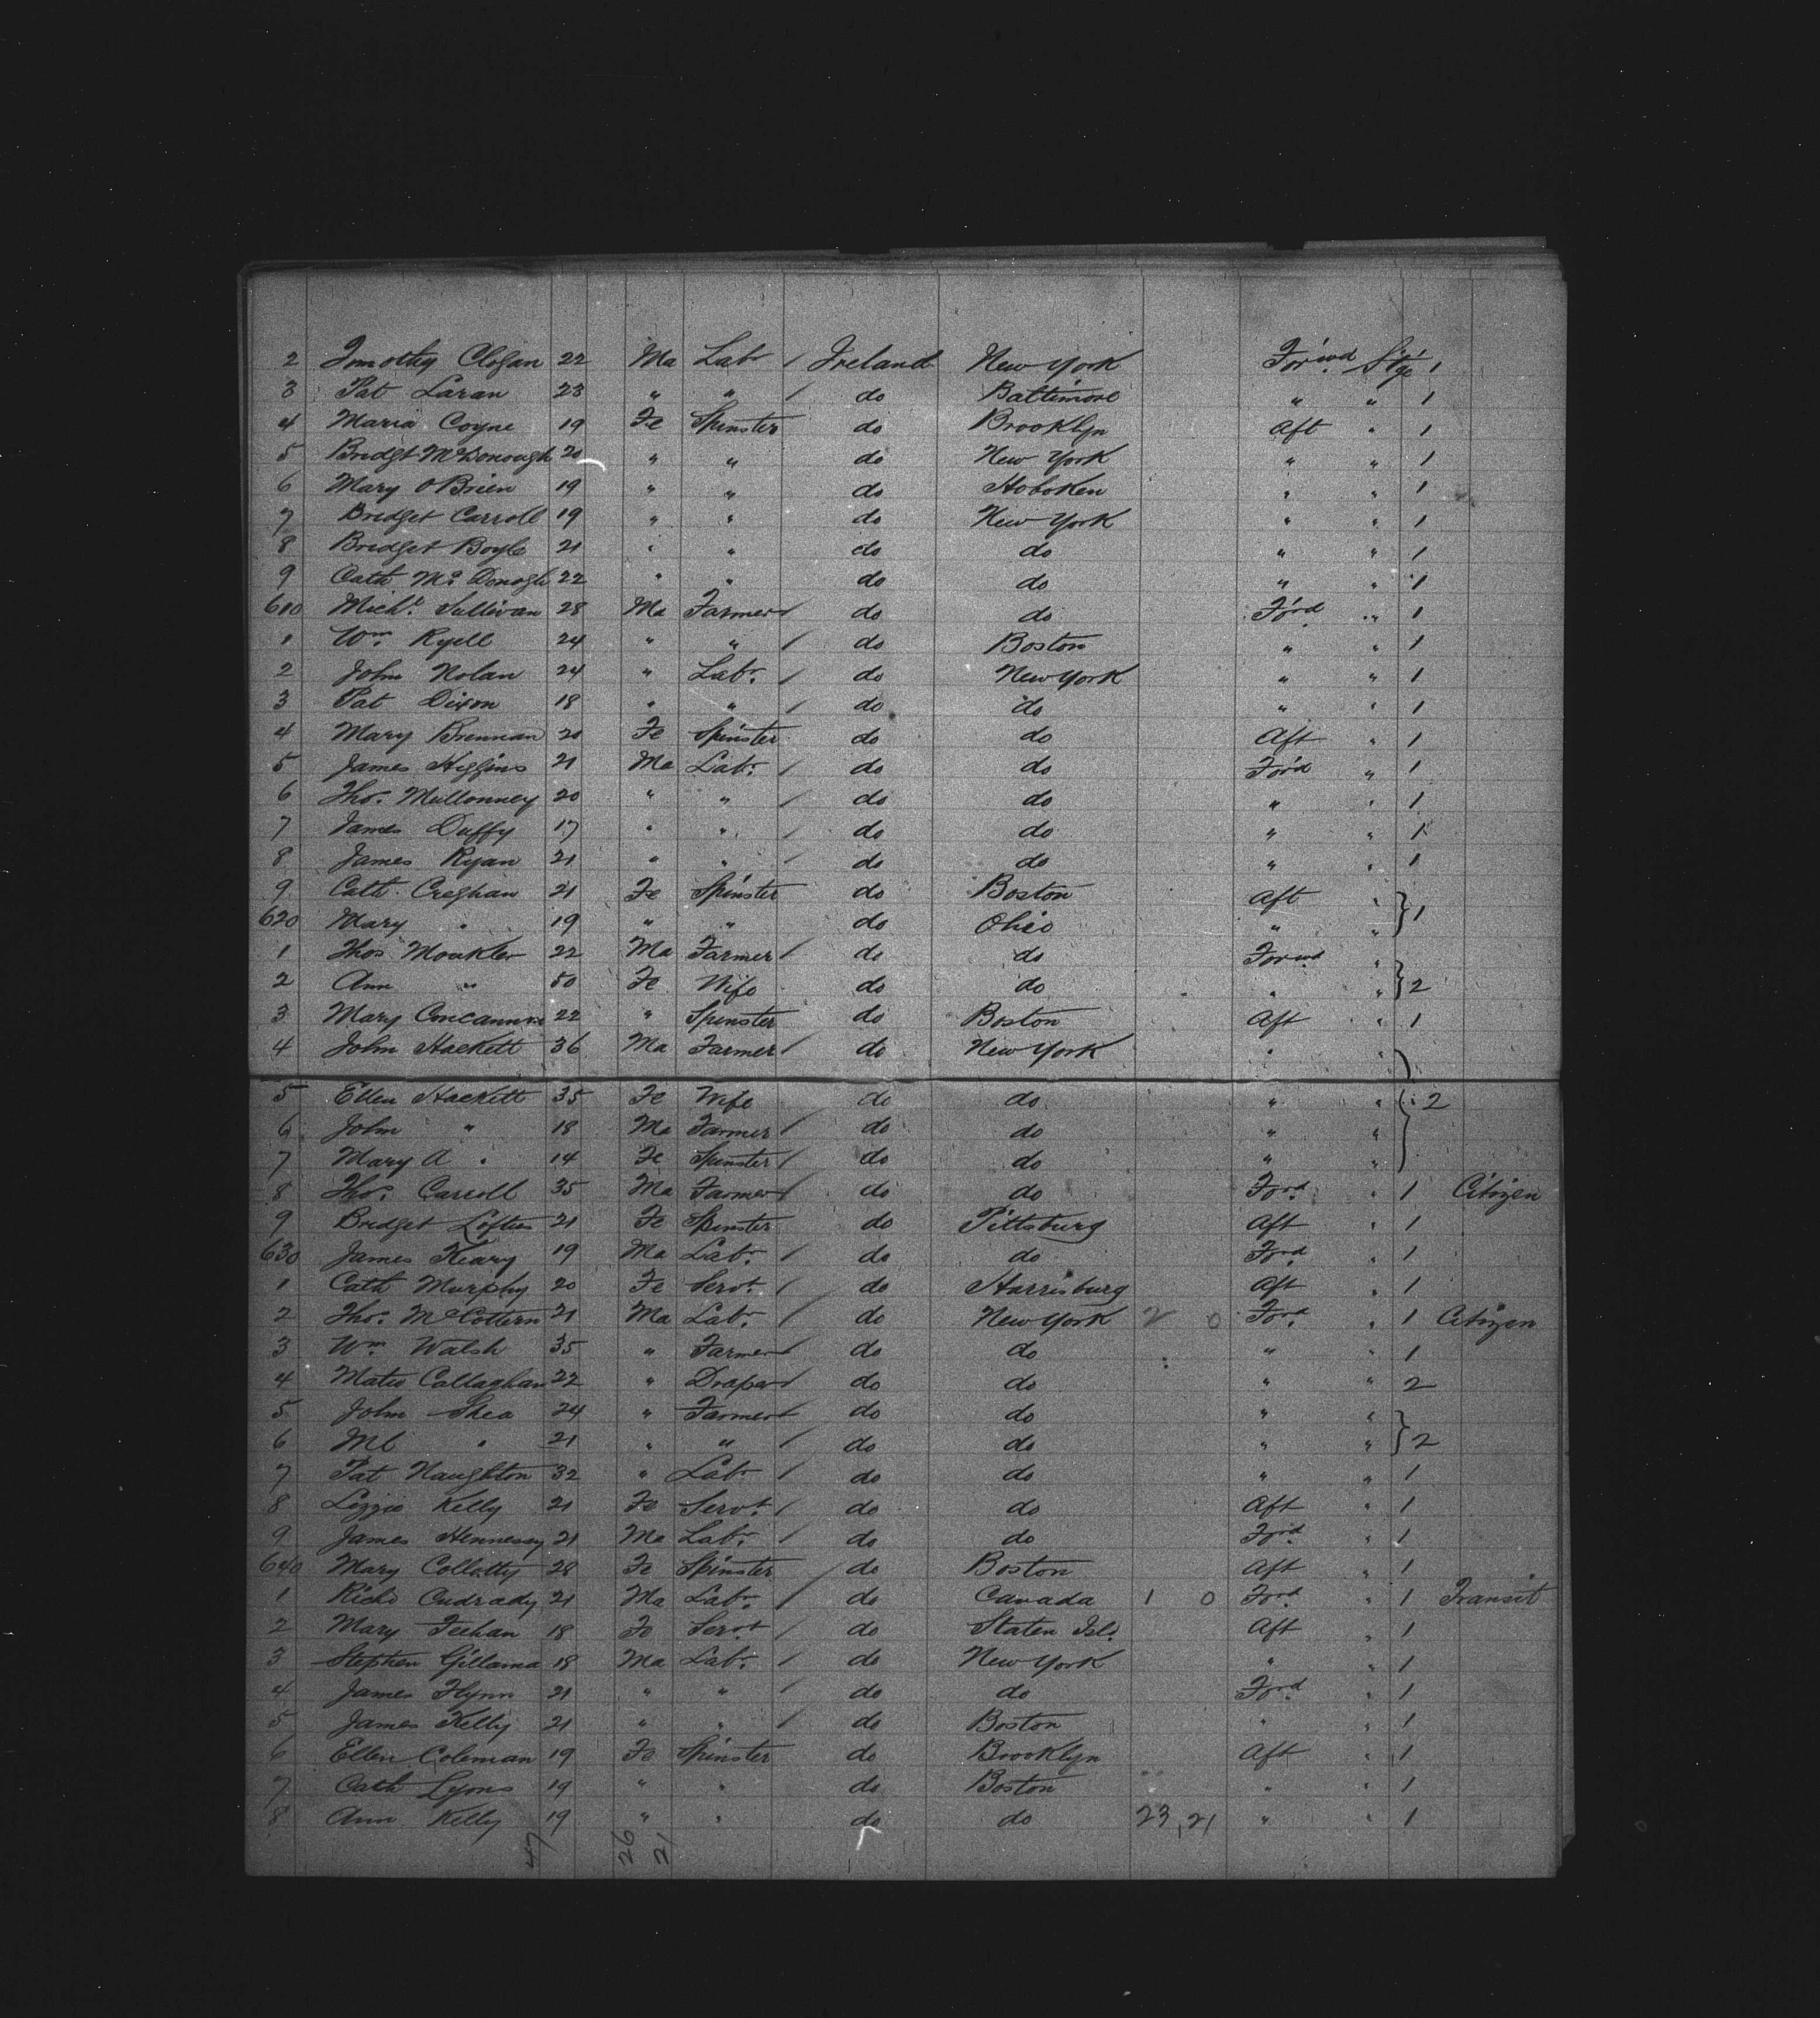 2 Timothy Clogan 22 Ma Labr / Ireland New York For'wd St'ge 1
3 Pat Laran 23 " " / do Baltimore " " 1
4 Maria Coyne 19 Fe Spinster do Brooklyn Aft " 1
5 Bridgt McDonough 20 " " do New York " " 1
6 Mary O'Brien 19 " " do Hoboken " " 1
7 Bridget Carroll 19 " " do New York " " 1
8 Bridget Boyle 21 " " do do " " 1
9 Cath Mc Donogh 22 " " do do " " 1
610 Michl Sullivan 28 Ma Farmer / do do For'd " 1
1 Wm Ryell 24 " " / do Boston " " 1
2 John Nolan 24 " Labr / do New York " " 1
3 Pat Dixon 18 " " / do do " " 1
4 Mary Brennan 20 Fe Spinster do do Aft " 1
5 James Higgins 21 Ma Labr / do do For'd " 1
6 Thos Mullonney 20 " " / do do " " 1
7 James Duffy 17 " " / do do " " 1
8 James Ryan 21 " " / do do " " 1
9 Cath Creghan 21 Fe Spinster do Boston Aft "
620 Mary " 19 " " do Ohio " " } 1
1 Thos Monkler 22 Ma Farmer / do do Forwd "
2 Ann " 50 Fe Wife do do " " } 2
3 Mary Concannon 22 " Spinster do Boston Aft " 1
4 John Hackett 36 Ma Farmer / do New York " "
5 Ellen Hackett 35 Fe Wife do do " " } 2
6 John " 18 Ma Farmer / do do " "
7 Mary A " 14 Fe Spinster / do do " "
8 Thos Carroll 35 Ma Farmer / do do Ford " 1 Citizen
9 Bridget Loftus 21 Fe Spinster do Pittsburg Aft " 1
630 James Keary 19 Ma Labr / do do Ford " 1
1 Cath Murphy 20 Fe Servt / do Harrisburg Aft " 1
2 Thos McCottern 21 Ma Labr / do New York 2 0 Ford " 1 Citizen
3 Wm Walsh 35 " Farmer / do do " " 1
4 Matw Callaghan 22 " Draper / do do " " 2
5 John Shea 24 " Farmer / do do " "
6 Ml " 21 " " / do do " " } 2
7 Pat Naughton 32 " Labr / do do " " 1
8 Lizzie Kelly 21 Fe Servt / do do Aft " 1
9 James Hennessy 21 Ma Labr / do do Ford " 1
640 Mary Collotty 28 Fe Spinster do Boston Aft " 1
1 Richd Cudrady 21 Ma Labr / do Canada 1 0 Ford " 1 Transit
2 Mary Feehan 18 Fe Servt / do Staten Isld Aft " 1
3 Stephen Gillama 18 Ma Labr / do New York " " 1
4 James Flynn 21 " " / do do Ford " 1
5 James Kelly 21 " " / do Boston " " 1
6 Ellen Coleman 19 Fe Spinster do Brooklyn Aft " 1
7 Cath Lyons 19 " " do Boston " " 1
8 Ann Kelly 19 " " do do 23, 21 " " 1
47 26 21